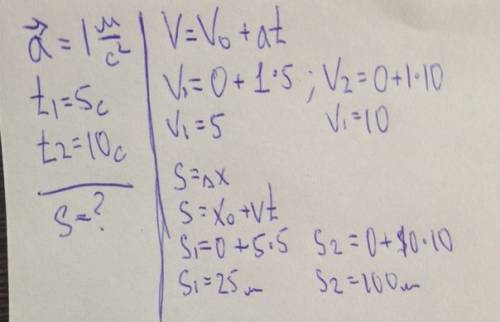 a⃗ = 1 м/с²
t₁=5с
t₂=10с
S=?
V=V₀+at
V₁=0+1·5 ; V₂=0+1·10
V₁=5 V₁=10
S=△x
S=x₀+Vt
S₁=0+5·5 S₂=0+10·10
S₁=25м S₂=100м